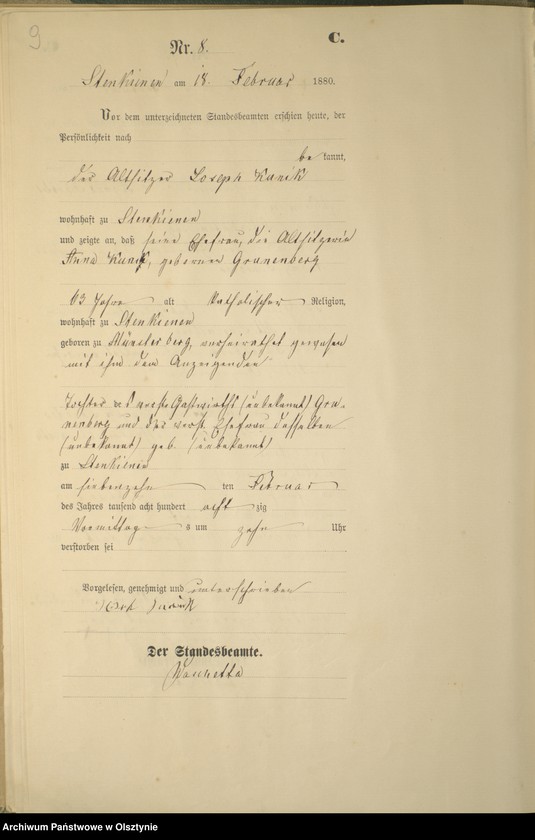 9
C.
Nr. 8.
Stenkienen am 18. Februar 1880.
Vor dem unterzeichneten Standesbeamten erschien heute, der
Persönlichkeit nach
be kannt,
der Altsitzer Joseph Kanik
wohnhaft zu Stenkienen
und zeigte an, daß seine Ehefrau, die Altsitzerin
Anna Kanik, geborene Granenberg
63 Jahre alt katholischer Religion,
wohnhaft zu Stenkienen
geboren zu Münsterberg, verheirathet gewesen
mit ihm dem Anzeigenden
Tochter des verst. Gastwirths (unbekannt) Gra-
nenberg und der verst. Ehefrau desselben
(unbekannt) geb. (unbekannt)
zu Stenkienen
am siebenzehn ten Februar
des Jahres tausend acht hundert acht zig
Vormittag s um zehn Uhr
verstorben sei
Vorgelesen, genehmigt und unterschrieben
Kanik
Der Standesbeamte.
Archiwum Państwowe w Olsztynie